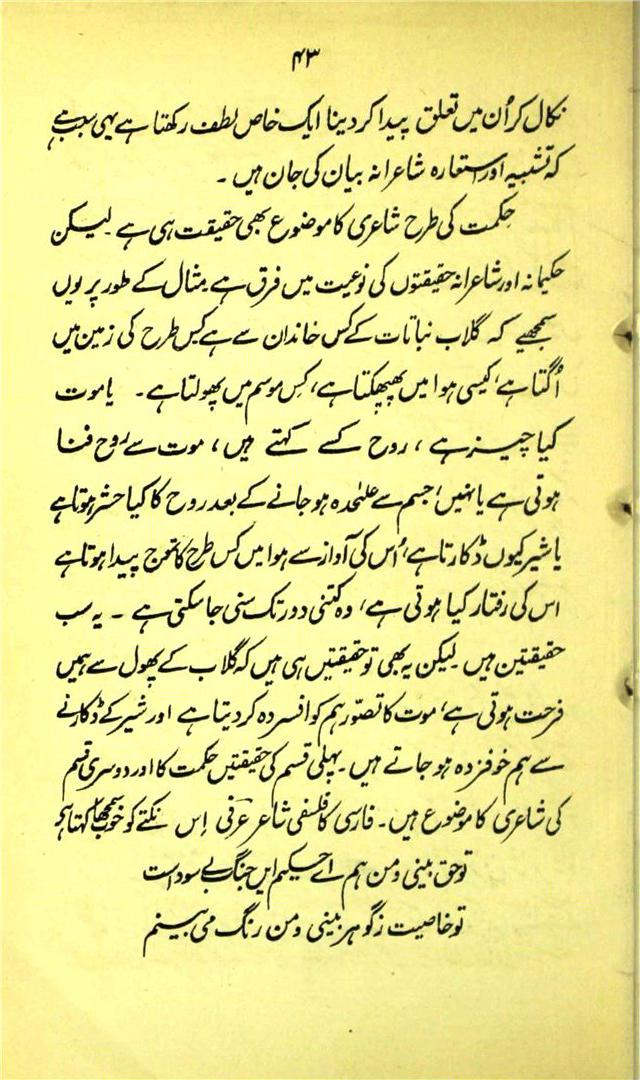 ۴۳
نکال کر اُن میں تعلق پیدا کر دینا ایک خاص لطف رکھتا ہے یہی سبب ہے
کہ تشبیہ اور استعارہ شاعرانہ بیان کی جان ہیں ۔
حکمت کی طرح شاعری کا موضوع بھی حقیقت ہی ہے ۔ لیکن
حکیمانہ اور شاعرانہ حقیقتوں کی نوعیت میں فرق ہے مثال کے طور پر یوں
سمجھیے کہ گلاب نباتات کے کس خاندان سے ہے کس طرح کی زمین میں
اُگتا ہے، کیسی ہوا میں پھبکتا ہے، کس موسم میں پھولتا ہے ۔ یا موت
کیا چیز ہے ، روح کسے کہتے ہیں ، موت سے روح فنا
ہوتی ہے یا نہیں، جسم سے علٰحدہ ہو جانے کے بعد روح کا کیا حشر ہوتا ہے
یا شیر کیوں ڈکارتا ہے، اُس کی آواز سے ہوا میں کس طرح کا تموج پیدا ہوتا ہے
اس کی رفتار کیا ہوتی ہے، وہ کتنی دور تک سنی جا سکتی ہے ۔ یہ سب
حقیقتین ہیں لیکن یہ بھی تو حقیقتیں ہی ہیں کہ گلاب کے پھول سے ہمیں
فرحت ہوتی ہے، موت کا تصوّر ہم کو افسردہ کر دیتا ہے اور شیر کے ڈکارنے
سے ہم خوفزدہ ہو جاتے ہیں ۔ پہلی قسم کی حقیقتیں حکمت کا اور دوسری قسم
کی شاعری کا موضوع ہیں ۔ فارسی کا فلسفی شاعر عرفی اِس نکتے کو خوب سمجھا کہتا ہے
تو حق بینی و من ہم اے حکیم ایں جنگ بے سود است
تو خاصیت ز گوہر بینی و من رنگ می بینم